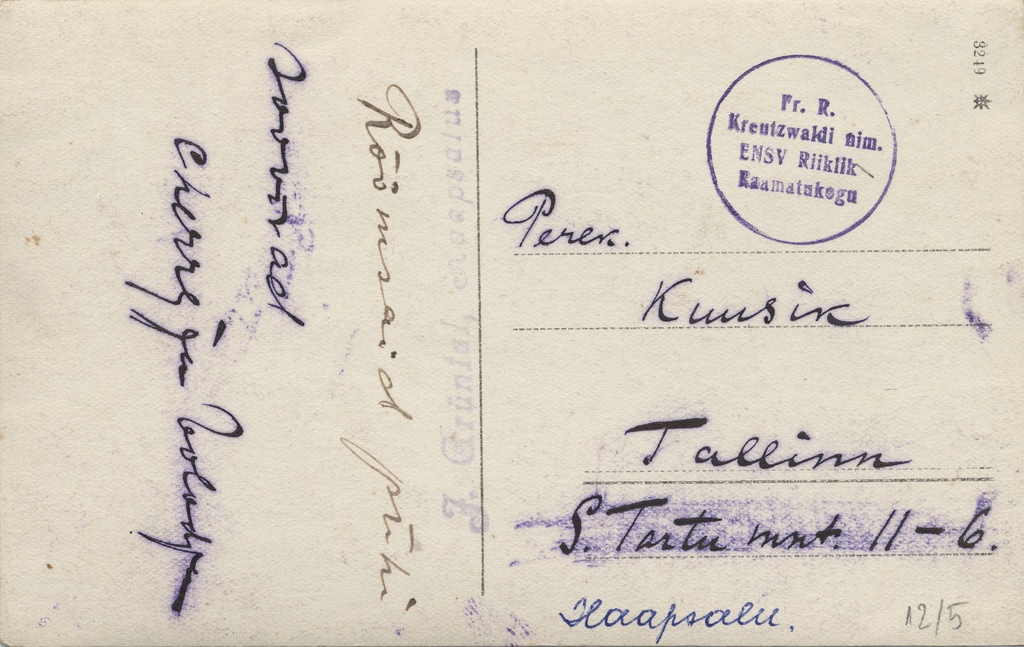 Rõõmsaid pühi
soovivad
J. Grüntal, Haapsalus
3249
Fr. R.
Kreutzwaldi nim.
ENSV Riiklik
Raamatukogu
Perek.
Kuusik
Tallinn
S. Tartu mnt. 11-6.
Haapsalu.
12/5